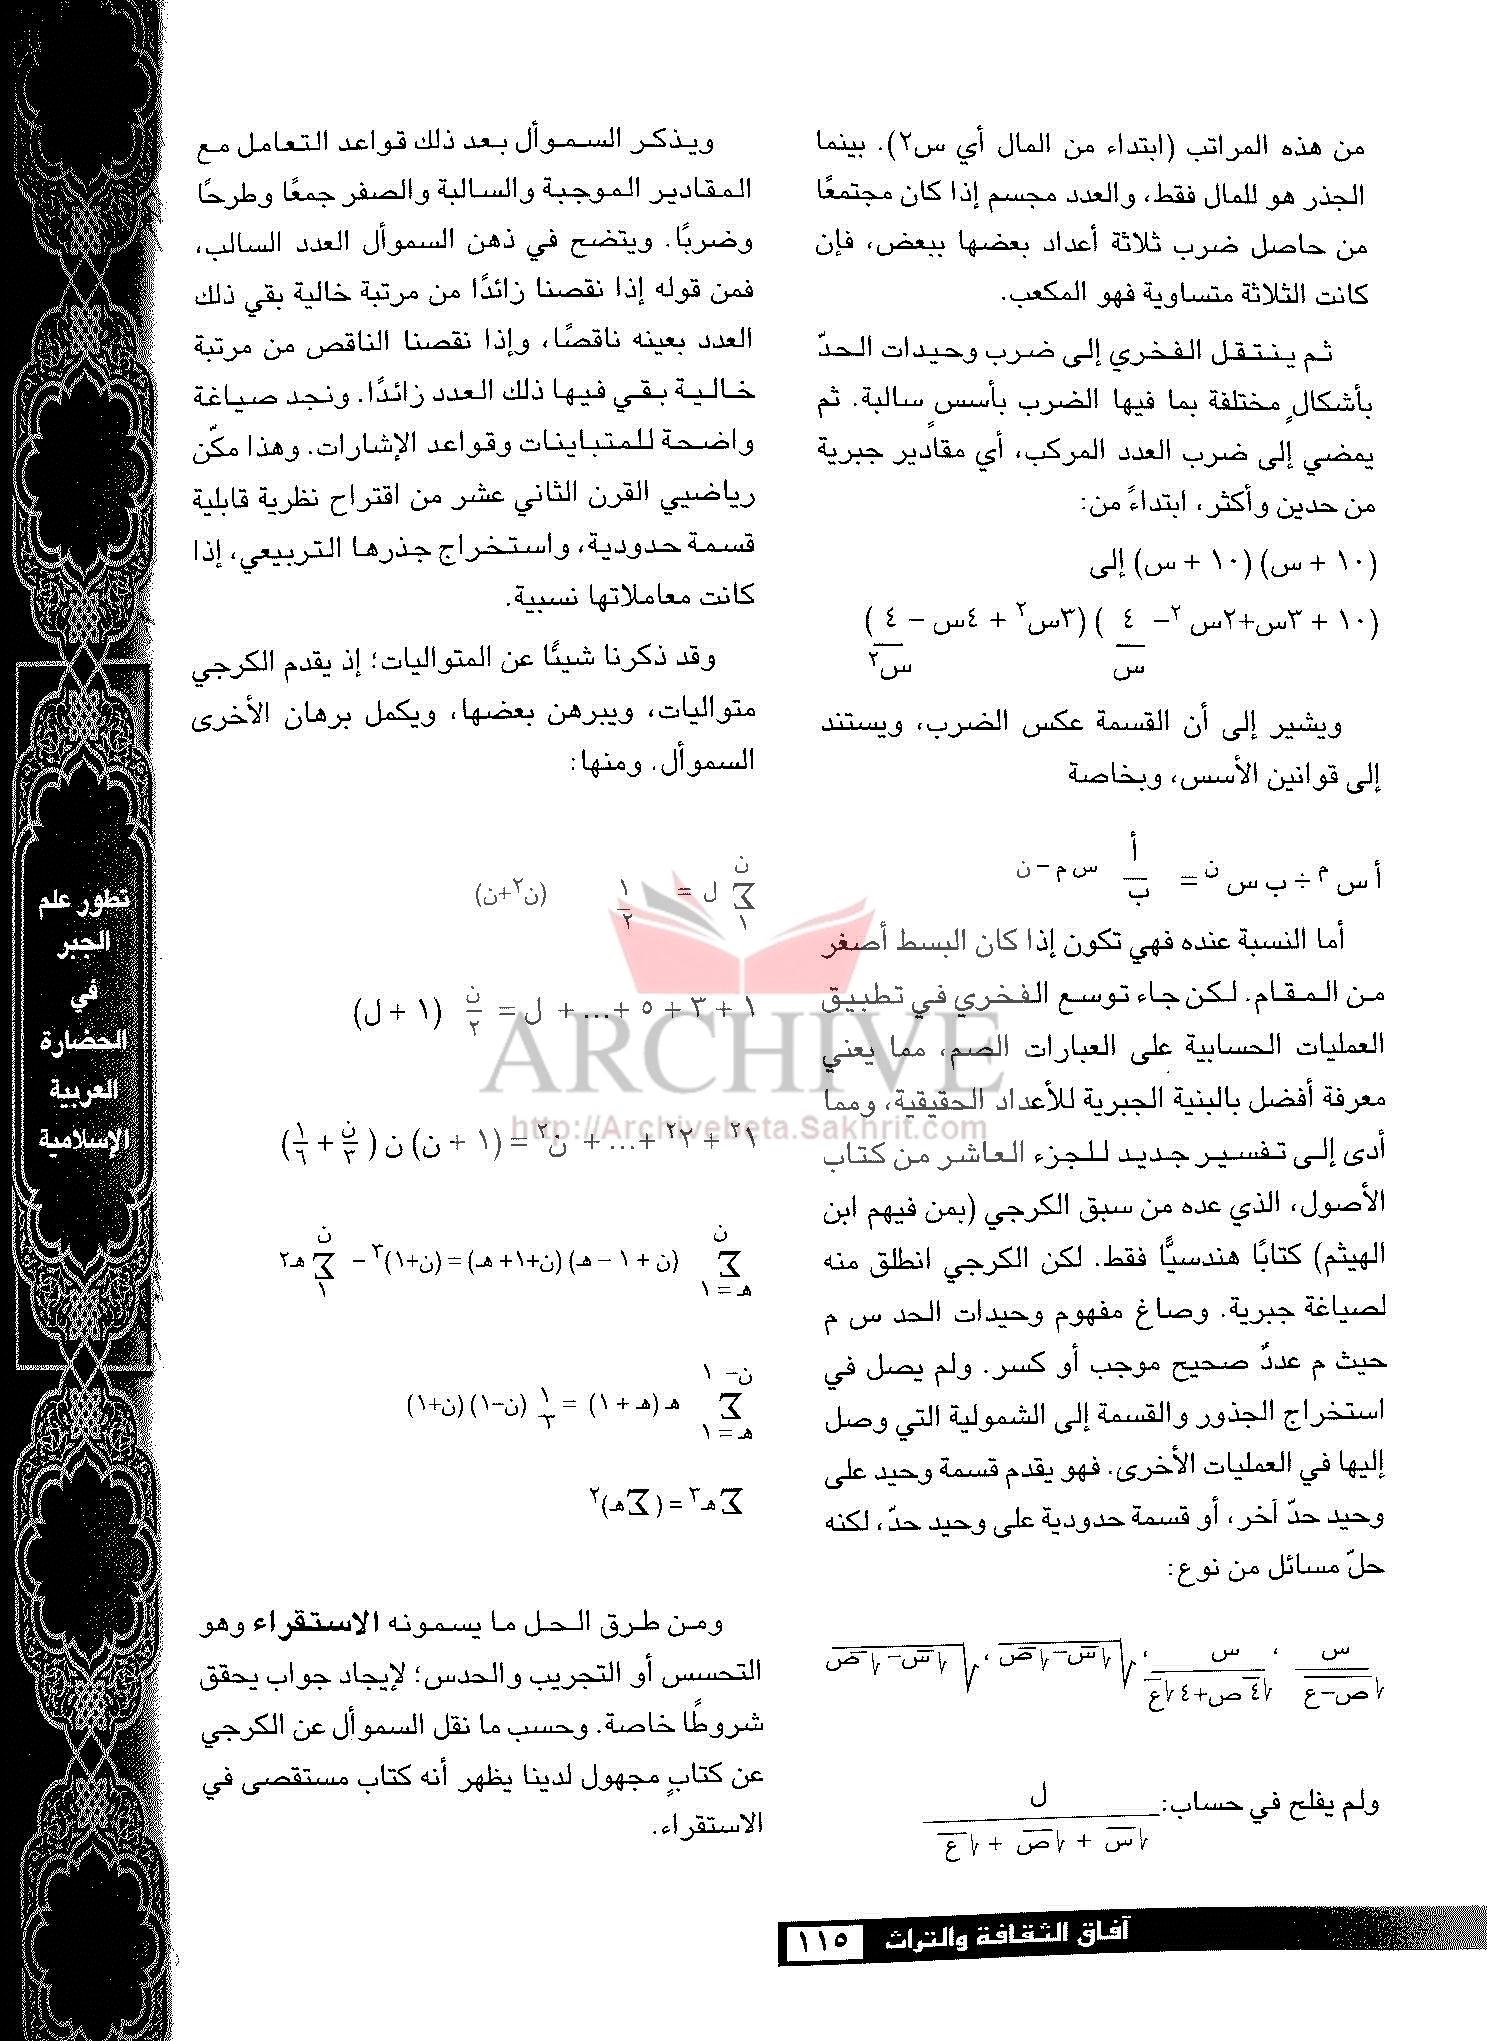 من هذه المراتب (ابتداء من المال أي س٢). بينما
الجذر هو للمال فقط، والعدد مجسم إذا كان مجتمعًا
من حاصل ضرب ثلاثة أعداد بعضها ببعض، فإن
كانت الثلاثة متساوية فهو المكعب.
ثم ينتقل الفخري إلى ضرب وحيدات الحدّ
بأشكالٍ مختلفة بما فيها الضرب بأسسٍ سالبة. ثم
يمضي إلى ضرب العدد المركب، أي مقادير جبرية
من حدين وأكثر، ابتداءً من:
(١٠ + س) (١٠ + س) إلى
(١٠ + ٣س+٢س٢ – ٤/س) (٣س٢ + ٤س – ٤/س٢)
ويشير إلى أن القسمة عكس الضرب، ويستند
إلى قوانين الأسس، وبخاصة
أ س م ÷ ب س ن = أ/ب س م–ن
أما النسبة عنده فهي تكون إذا كان البسط أصغر
من المقام. لكن جاء توسع الفخري في تطبيق
العمليات الحسابية على العبارات الصم، مما يعني
معرفة أفضل بالبنية الجبرية للأعداد الحقيقية، ومما
أدى إلى تفسير جديد للجزء العاشر من كتاب
الأصول، الذي عده من سبق الكرجي (بمن فيهم ابن
الهيثم) كتابًا هندسيًّا فقط. لكن الكرجي انطلق منه
لصياغة جبرية. وصاغ مفهوم وحيدات الحد س م
حيث م عددٌ صحيح موجب أو كسر. ولم يصل في
استخراج الجذور والقسمة إلى الشمولية التي وصل
إليها في العمليات الأخرى. فهو يقدم قسمة وحيد على
وحيد حدّ آخر، أو قسمة حدودية على وحيد حدّ، لكنه
حلّ مسائل من نوع:
س/√ص–ع ، س/√٤ص+√٤ع ، √(√س–√ص) ، √(√س–√ص)
ولم يفلح في حساب: ل/(√س + √ص + √ع)
ويذكر السموأل بعد ذلك قواعد التعامل مع
المقادير الموجبة والسالبة والصفر جمعًا وطرحًا
وضربًا. ويتضح في ذهن السموأل العدد السالب،
فمن قوله إذا نقصنا زائدًا من مرتبة خالية بقي ذلك
العدد بعينه ناقصًا، وإذا نقصنا الناقص من مرتبة
خالية بقي فيها ذلك العدد زائدًا. ونجد صياغة
واضحة للمتباينات وقواعد الإشارات. وهذا مكّن
رياضيي القرن الثاني عشر من اقتراح نظرية قابلية
قسمة حدودية، واستخراج جذرها التربيعي، إذا
كانت معاملاتها نسبية.
وقد ذكرنا شيئًا عن المتواليات؛ إذ يقدم الكرجي
متواليات، ويبرهن بعضها، ويكمل برهان الأخرى
السموأل. ومنها:
ن
∑ ل = ١/٢ (ن٢+ن)
١
١ + ٣ + ٥ +...+ ل = ن/٢ (١ + ل)
١٢ + ٢٢ +...+ ن٢ = (١ + ن) ن (ن/٣ + ١/٦)
ن ن
∑ (ن + ١ – هـ) (ن+١+ هـ) = (ن+١)٣ – ∑ هـ٢
هـ = ١ ١
ن– ١
∑ هـ (هـ + ١) = ١/٣ (ن–١) (ن+١)
هـ = ١
∑هـ٣ = (∑هـ)٢
ومن طرق الحل ما يسمونه الاستقراء وهو
التحسس أو التجريب والحدس؛ لإيجاد جواب يحقق
شروطًا خاصة. وحسب ما نقل السموأل عن الكرجي
عن كتابٍ مجهول لدينا يظهر أنه كتاب مستقصى في
الاستقراء.
تطور علم
الجبر
في
الحضارة
العربية
الإسلامية
ARCHIVE
http://Archivebeta.Sakhrit.com
آفاق الثقافة والتراث ١١٥